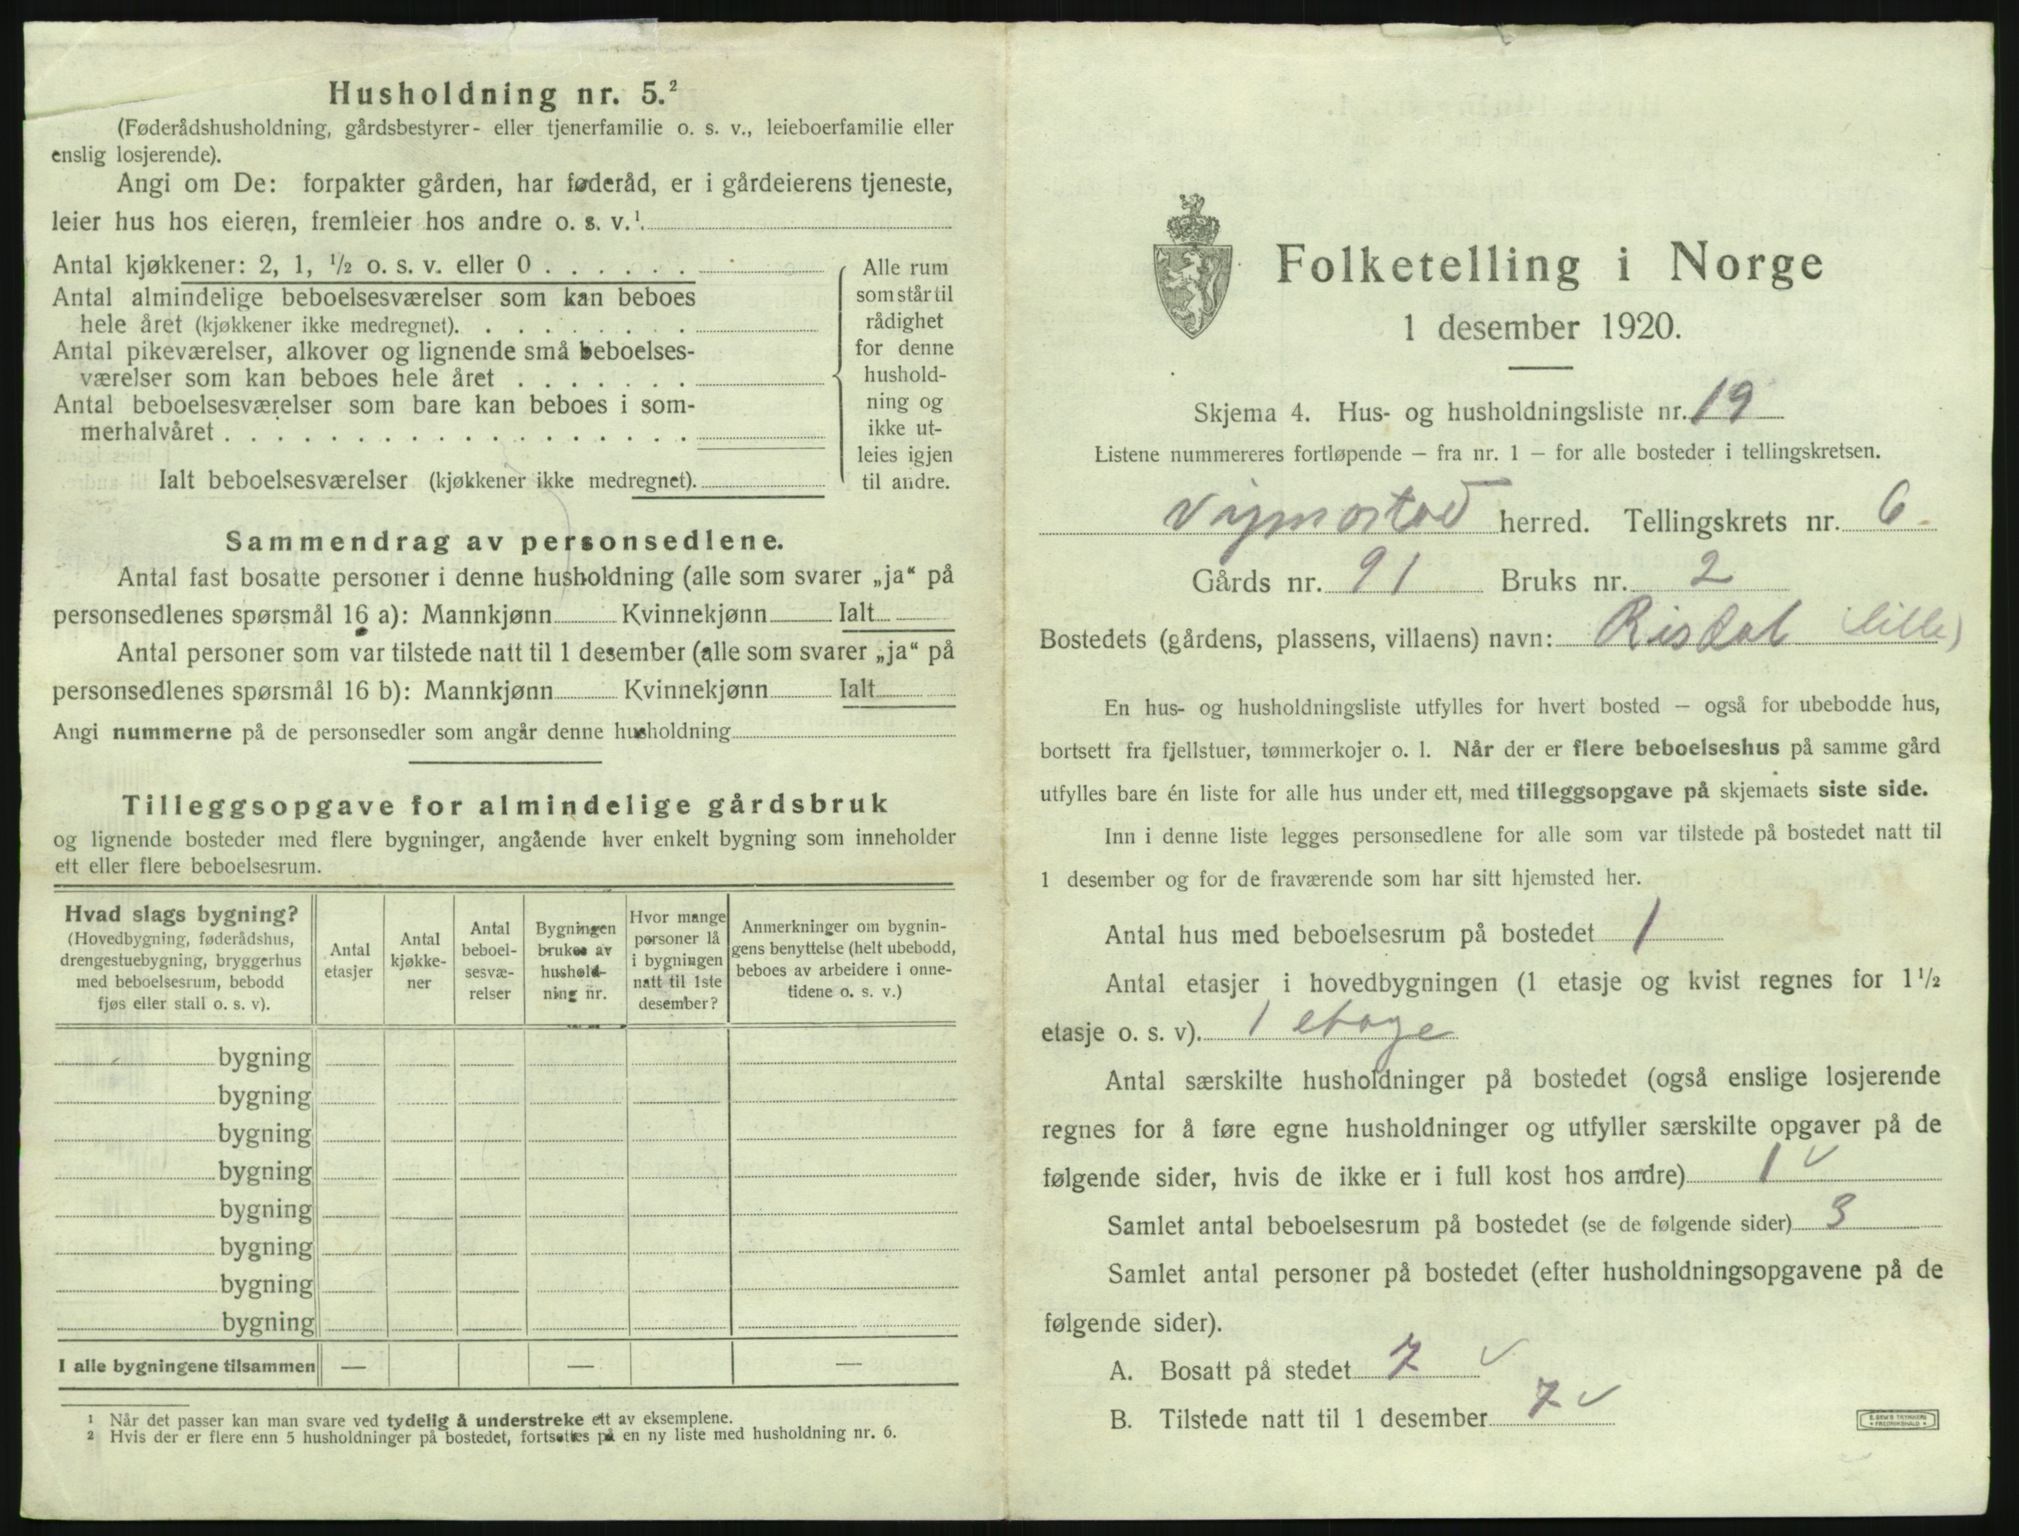 Husholdning nr. 5.²
(Føderådshusholdning, gårdsbestyrer- eller tjenerfamilie o. s. v., leieboerfamilie eller
enslig losjerende).
Angi om De: forpakter gården, har føderåd, er i gårdeierens tjeneste,
leier hus hos eieren, fremleier hos andre o. s. v.¹
Antal kjøkkener: 2, 1, ½ o. s. v. eller 0
Antal almindelige beboelsesværelser som kan beboes
hele året (kjøkkener ikke medregnet).
Antal pikeværelser, alkover og lignende små beboelses-
værelser som kan beboes hele året
Antal beboelsesværelser som bare kan beboes i som-
merhalvåret
Ialt beboelsesværelser (kjøkkener ikke medregnet).
Alle rum
som står til
rådighet
for denne
hushold-
ning og
ikke ut-
leies igjen
til andre.
Sammendrag av personsedlene.
Antal fast bosatte personer i denne husholdning (alle som svarer „ja“ på
personsedlenes spørsmål 16 a): Mannkjønn Kvinnekjønn Ialt
Antal personer som var tilstede natt til 1 desember (alle som svarer „ja“ på
personsedlenes spørsmål 16 b): Mannkjønn Kvinnekjønn Ialt
Angi nummerne på de personsedler som angår denne husholdning
Tilleggsopgave for almindelige gårdsbruk
og lignende bosteder med flere bygninger, angående hver enkelt bygning som inneholder
ett eller flere beboelsesrum.
Hvad slags bygning?
(Hovedbygning, føderådshus,
drengestuebygning, bryggerhus
med beboelsesrum, bebodd
fjøs eller stall o. s. v).
Antal
etasjer
Antal
kjøkke-
ner
Antal
beboel-
sesvæ-
relser
Bygningen
brukes av
hushold-
ning nr.
Hvor mange
personer lå
i bygningen
natt til 1ste
desember?
Anmerkninger om bygnin-
gens benyttelse (helt ubebodd,
beboes av arbeidere i onne-
tidene o. s. v.)
bygning
bygning
bygning
bygning
bygning
bygning
bygning
bygning
I alle bygningene tilsammen — — —
¹ Når det passer kan man svare ved tydelig å understreke ett av eksemplene.
² Hvis der er flere enn 5 husholdninger på bostedet, fortsettes på en ny liste med husholdning nr. 6.
Folketelling i Norge
1 desember 1920.
Skjema 4. Hus- og husholdningsliste nr. 19
Listene nummereres fortløpende — fra nr. 1 — for alle bosteder i tellingskretsen.
Vigmostad herred. Tellingskrets nr. 6
Gårds nr. 91 Bruks nr. 2
Bostedets (gårdens, plassens, villaens) navn: Risdal (lille)
En hus- og husholdningsliste utfylles for hvert bosted — også for ubebodde hus,
bortsett fra fjellstuer, tømmerkojer o. l. Når der er flere beboelseshus på samme gård
utfylles bare én liste for alle hus under ett, med tilleggsopgave på skjemaets siste side.
Inn i denne liste legges personsedlene for alle som var tilstede på bostedet natt til
1 desember og for de fraværende som har sitt hjemsted her.
Antal hus med beboelsesrum på bostedet 1
Antal etasjer i hovedbygningen (1 etasje og kvist regnes for 1½
etasje o. s. v). 1 etage
Antal særskilte husholdninger på bostedet (også enslige losjerende
regnes for å føre egne husholdninger og utfyller særskilte opgaver på de
følgende sider, hvis de ikke er i full kost hos andre) 1 ✓
Samlet antal beboelsesrum på bostedet (se de følgende sider) 3
Samlet antal personer på bostedet (efter husholdningsopgavene på de
følgende sider).
A. Bosatt på stedet 7 ✓
B. Tilstede natt til 1 desember 7 ✓